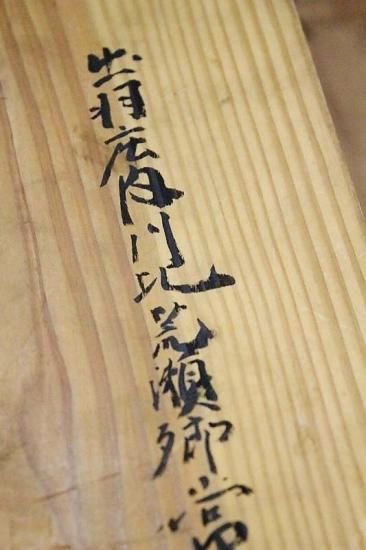 出羽庄内川北荒瀬郷當